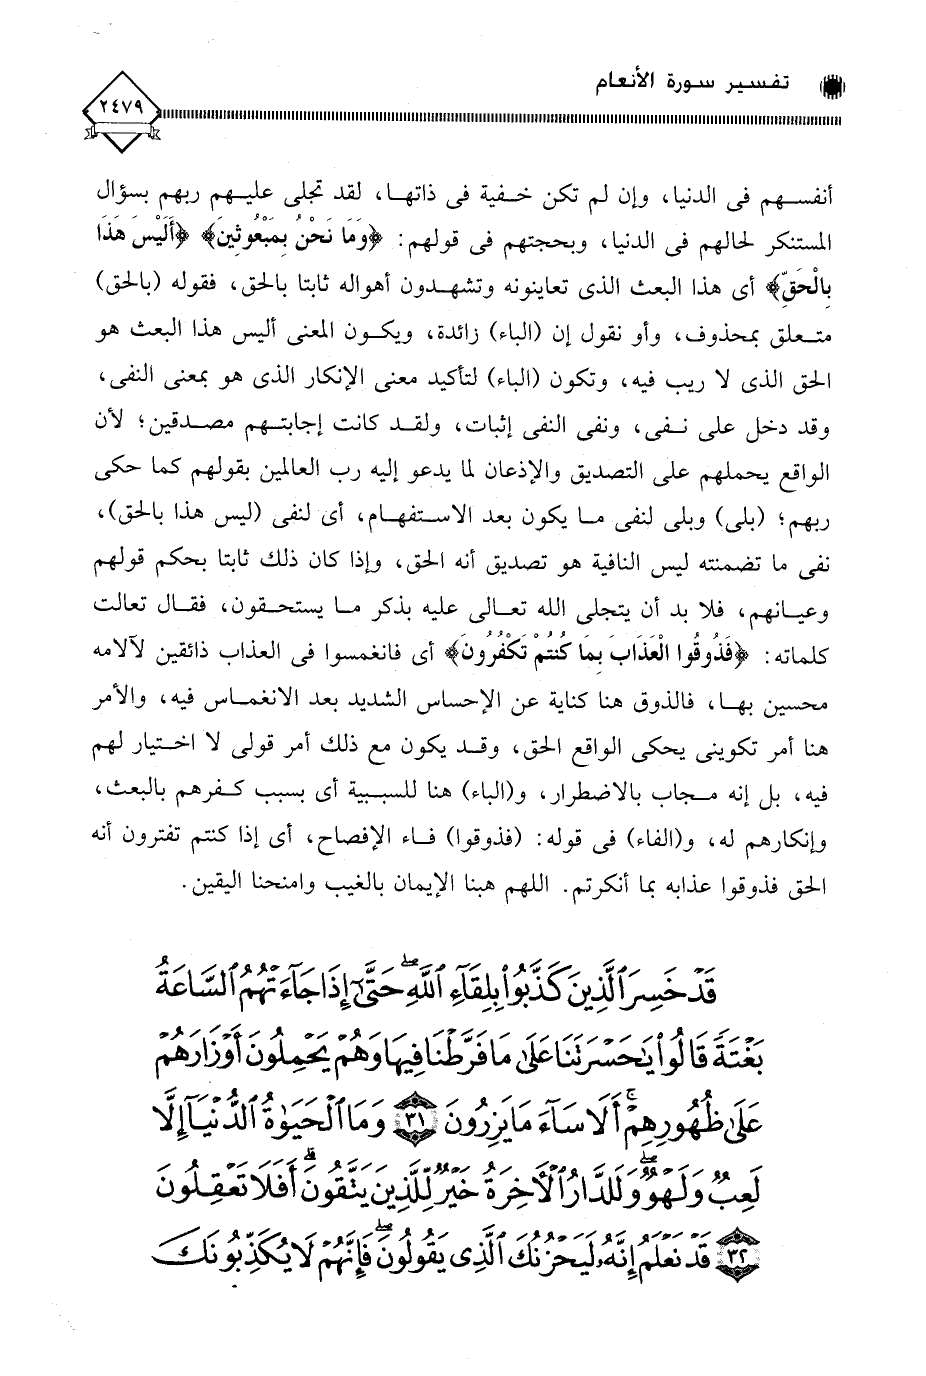 تفسير سورة الأنعام
٢٤٧٩
أنفسهم فى الدنيا، وإن لم تكن خفية فى ذاتها، لقد تجلى عليهم ربهم بسؤال
المستنكر لحالهم فى الدنيا، وبحجتهم فى قولهم: ﴿وَمَا نَحْنُ بِمَبْعُوثِينَ﴾ ﴿أَلَيْسَ هَذَا
بِالْحَقِّ﴾ أى هذا البعث الذى تعاينونه وتشهدون أهواله ثابتا بالحق، فقوله (بالحق)
متعلق بمحذوف، وأو نقول إن (الباء) زائدة، ويكون المعنى أليس هذا البعث هو
الحق الذى لا ريب فيه، وتكون (الباء) لتأكيد معنى الإنكار الذى هو بمعنى النفى،
وقد دخل على نفى، ونفى النفى إثبات، ولقد كانت إجابتهم مصدقين؛ لأن
الواقع يحملهم على التصديق والإذعان لما يدعو إليه رب العالمين بقولهم كما حكى
ربهم؛ (بلى) وبلى لنفى ما يكون بعد الاستفهام، أى لنفى (ليس هذا بالحق)،
نفى ما تضمنته ليس النافية هو تصديق أنه الحق، وإذا كان ذلك ثابتا بحكم قولهم
وعيانهم، فلا بد أن يتجلى الله تعالى عليه بذكر ما يستحقون، فقال تعالت
كلماته: ﴿فَذُوقُوا الْعَذَابَ بِمَا كُنتُمْ تَكْفُرُونَ﴾ أى فانغمسوا فى العذاب ذائقين لآلامه
محسين بها، فالذوق هنا كناية عن الإحساس الشديد بعد الانغماس فيه، والأمر
هنا أمر تكوينى يحكى الواقع الحق، وقد يكون مع ذلك أمر قولى لا اختيار لهم
فيه، بل إنه مجاب بالاضطرار، و(الباء) هنا للسببية أى بسبب كفرهم بالبعث،
وإنكارهم له، و(الفاء) فى قوله: (فذوقوا) فاء الإفصاح، أى إذا كنتم تفترون أنه
الحق فذوقوا عذابه بما أنكرتم. اللهم هبنا الإيمان بالغيب وامنحنا اليقين.
قَدْ خَسِرَ ٱلَّذِينَ كَذَّبُوا۟ بِلِقَآءِ ٱللَّهِ ۖ حَتَّىٰٓ إِذَا جَآءَتْهُمُ ٱلسَّاعَةُ
بَغْتَةً قَالُوا۟ يَـٰحَسْرَتَنَا عَلَىٰ مَا فَرَّطْنَا فِيهَا وَهُمْ يَحْمِلُونَ أَوْزَارَهُمْ
عَلَىٰ ظُهُورِهِمْ ۚ أَلَا سَآءَ مَا يَزِرُونَ ٣١ وَمَا ٱلْحَيَوٰةُ ٱلدُّنْيَآ إِلَّا
لَعِبٌ وَلَهْوٌ ۖ وَلَلدَّارُ ٱلْـَٔاخِرَةُ خَيْرٌ لِّلَّذِينَ يَتَّقُونَ ۗ أَفَلَا تَعْقِلُونَ
٣٢ قَدْ نَعْلَمُ إِنَّهُۥ لَيَحْزُنُكَ ٱلَّذِى يَقُولُونَ ۖ فَإِنَّهُمْ لَا يُكَذِّبُونَكَ